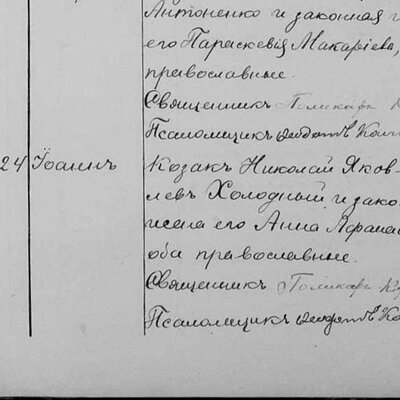 Антоненко и законная
его Параскевiя Макарiева,
православные.
Священникъ Поликарпъ
Псаломщикъ Ѳеодотъ
24 Iоаннъ Козакъ Николай Яков-
левъ Холодный и зако-
его Анна Афанас
оба православные.
Священникъ Поликарпъ
Псаломщикъ Ѳеодотъ